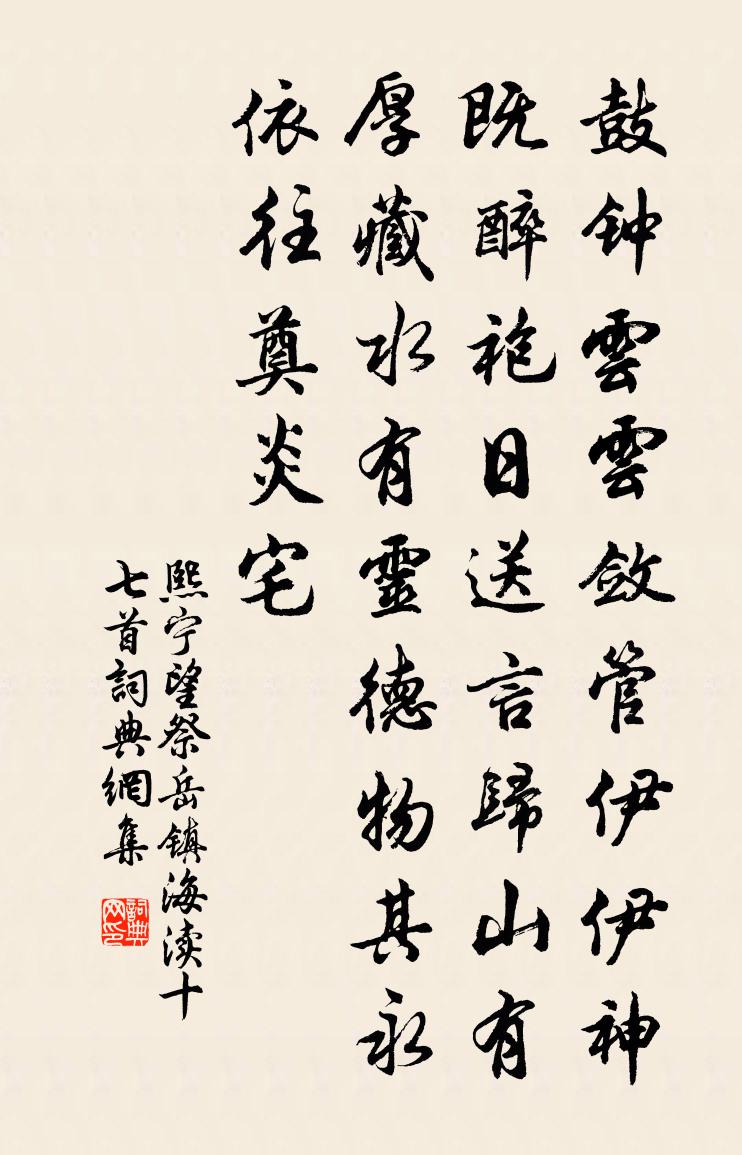 鼓钟雲雲斂管伊伊神
既醉袍日送言歸山有
厚藏水有靈德物其永
依往奠炎宅
熙宁望祭岳镇海渎十
七首詞典網集
詞典网印